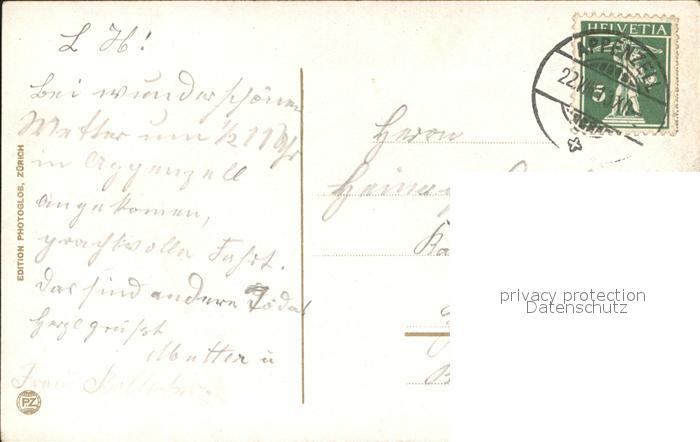 L H!
bei wunderschönem
Wetter um ½ 11 Uhr
in Appenzell
angekomen,
prachtvolle Fahrt.
Das sind andere
Herzl grüsst
Mutter u
Frau
EDITION PHOTOGLOB, ZÜRICH
PZ
HELVETIA
APPENZELL
5
Herrn
privacy protection
Datenschutz